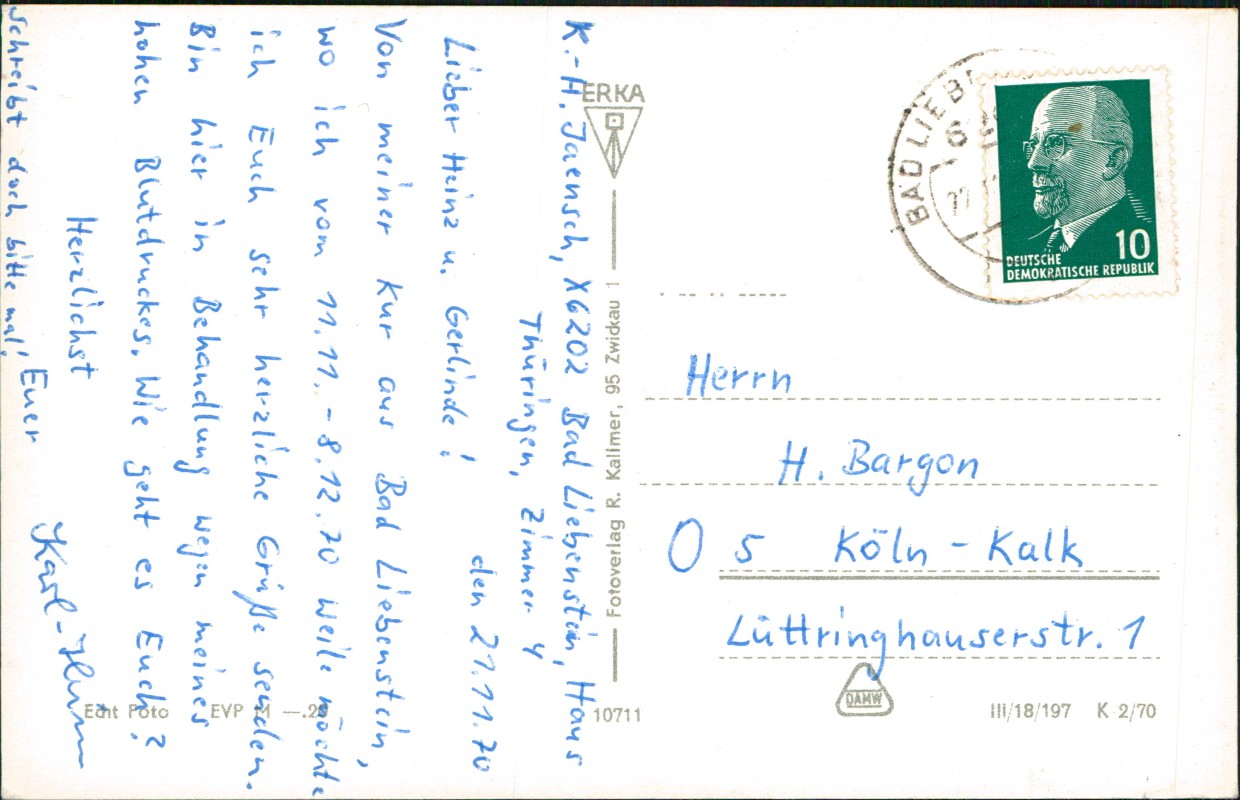 K.-H. Jaensch, X6202 Bad Liebenstein, Haus
Thüringen, Zimmer 4
den 21.11.70
Lieber Heinz u. Gerlinde!
Von meiner Kur aus Bad Liebenstein,
wo ich vom 11.11.-8.12.70 weile möchte
ich Euch sehr herzliche Grüße senden.
Bin hier in Behandlung wegen meines
hohen Blutdruckes. Wie geht es Euch?
Herzlichst
Euer Karl-Heinz
Schreibt doch bitte mal!
ERKA
Fotoverlag R. Kallmer, 95 Zwickau 1
BAD LIEB
10
DEUTSCHE
DEMOKRATISCHE REPUBLIK
Herrn
H. Bargon
O 5 Köln-Kalk
Lüttringhauserstr. 1
DAMW
Echt Foto EVP M —.25
10711
III/18/197 K 2/70